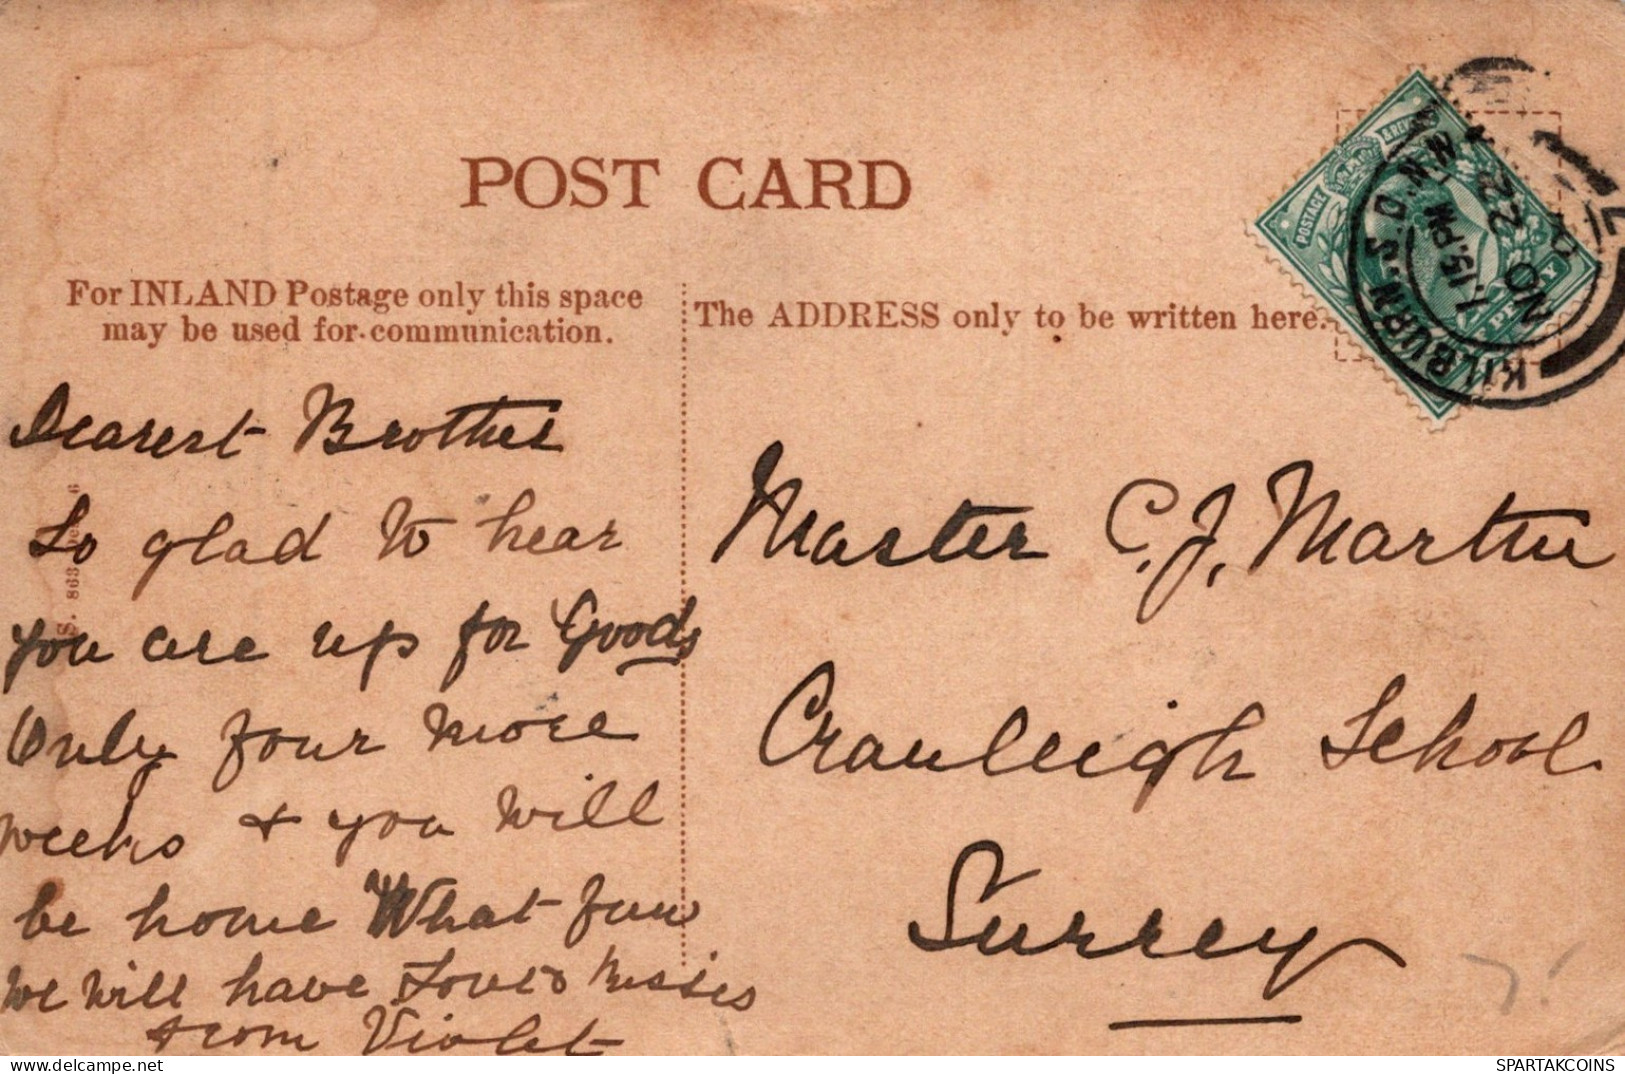 POST CARD
For INLAND Postage only this space
may be used for communication.
The ADDRESS only to be written here.
POSTAGE
& REVE
PENNY
KILBURN. S.D. N.W.
7.15. PM
NO 22
Dearest Brother
So glad to hear
you are up for Goods
Only four more
weeks & you will
be home What fun
we will have Love & kisses
from Violet
Master C. J. Martin
Cranleigh School
Surrey
SPARTAKCOINS